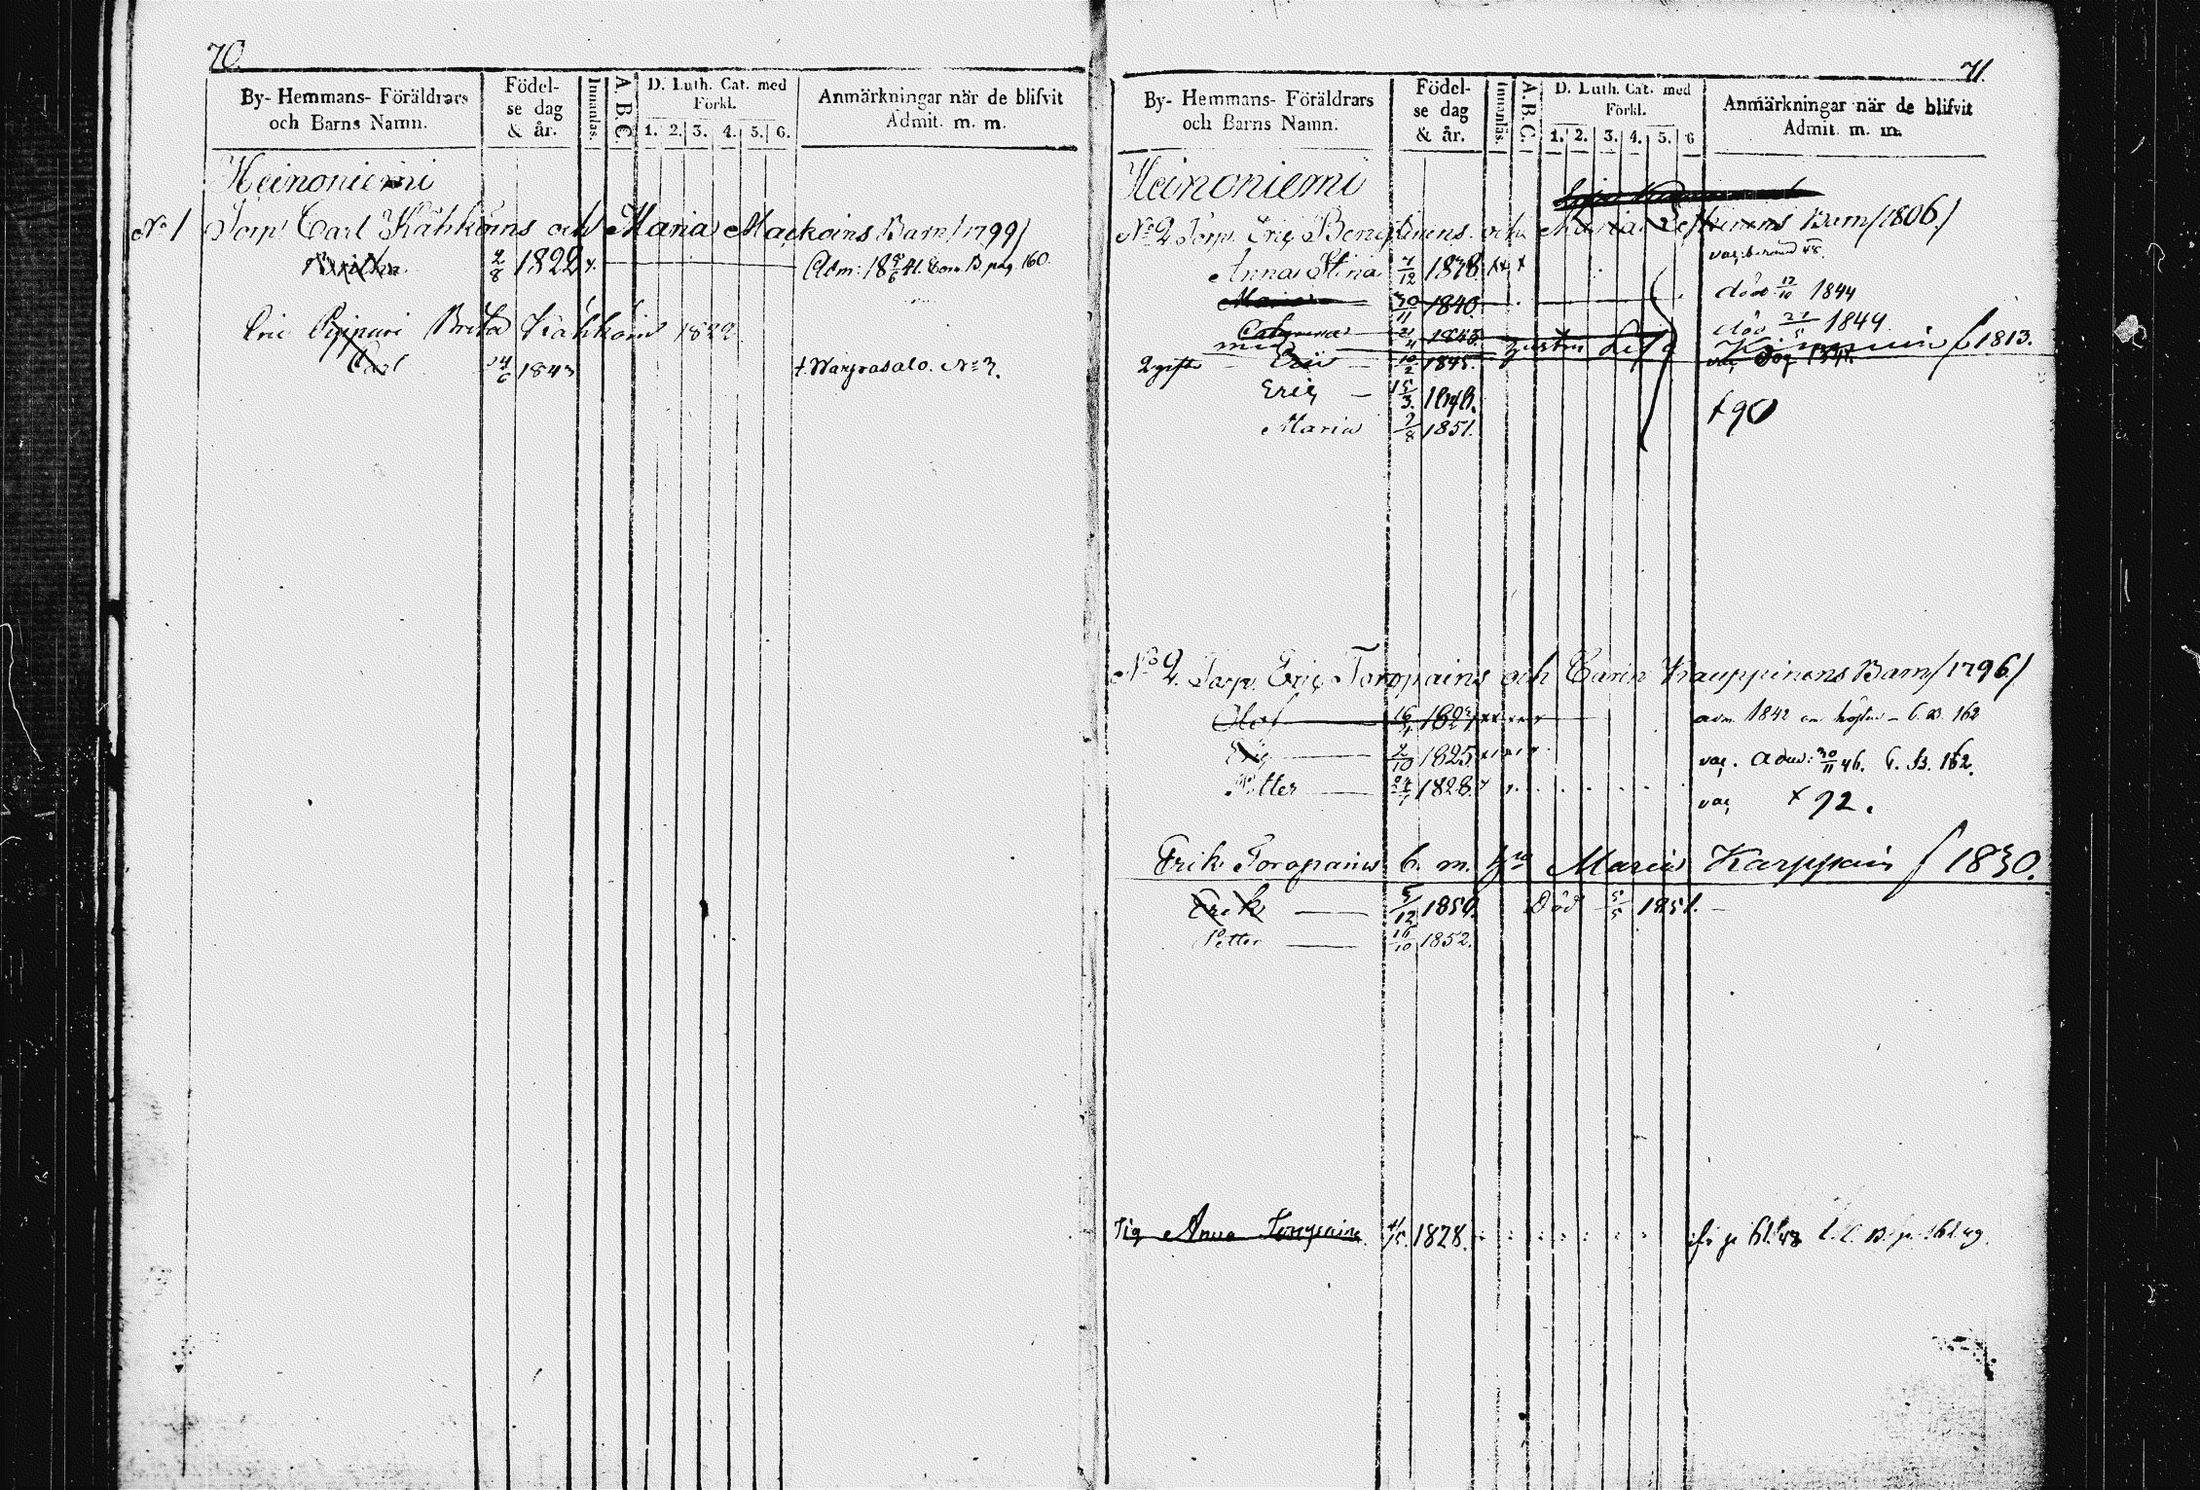 70.
By- Hemmans- Föräldrars och Barns Namn.
Födel-se dag & år.
Innanläs.
A. B. C.
D. Luth. Cat. med Förkl.
1. 2. 3. 4. 5. 6.
Anmärkningar när de blifvit Admit. m. m.
Heinoniemi
No 1 Torp Carl Kähköins och Maria Mackoins Barn /1799/
2/8 1822 Adm: 18 41. Com. B. pag. 160.
Eric Brita Kähköin 1822
Carl 24/6 1843 t. Wargasalo. No 3.
71.
By- Hemmans- Föräldrars och Barns Namn.
Födel-se dag & år.
Innanläs.
A. B. C.
D. Luth. Cat. med Förkl.
1. 2. 3. 4. 5. 6
Anmärkningar när de blifvit Admit. m. m.
Heinoniemi
No 2 Torp. Eric och Maria Barn /1806/
Anna Stina 7/12 1838 vac.
Maria 30/11 1840 död 12/10 1844
Catharina 21/4 1843 död 21/5 1849
2 gift med hustru f 1813.
Eric 10/2 1845. vac
Eric 15/3 1848. t 90
Maria 7/8 1851.
No 2. Torp. Eric Toropains och Carin Kauppinens Barn /1796/
Olof 16/4 adm 1842 om hösten - C. B. 162
Eric 2/10 1825 vac. adm: 30/11 46. C. B. 162.
Petter 1828. vac t 92.
Erik Toropains b. m. hu Maria Karppain f 1830.
Erik 5/12 1850. Död 5/5 1851.
Petter 16/10 1852.
Pig Anna Toropain 4/5 1828.